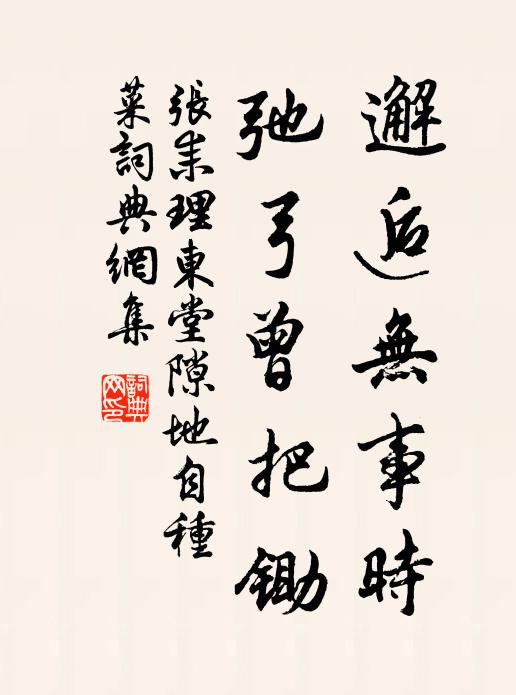 邂逅無事時
弛弓曾把鋤
張耒理東堂隙地自種
菜詞典網集
詞典
网印